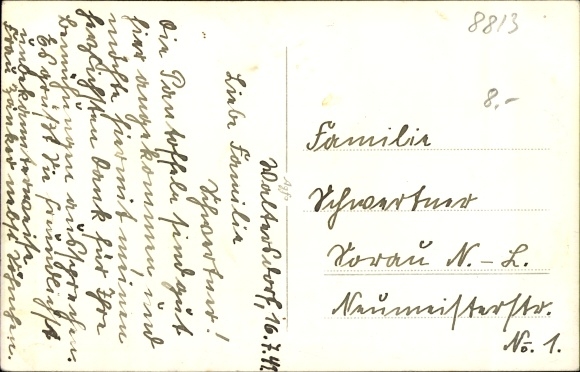 Waltersdorf, 16.7.42
Liebe Familie
Schwertner!
Die Pantoffeln sind gut
hier angekommen und
möchte hiermit meinen
herzlichsten Dank für Ihre
Bemühungen aussprechen.
Es grüßt Sie freundlichst
unbekannterweise
Frau Zanker nebst Söhnchen.
8813
8.-
Familie
Schwertner
Sorau N.-L.
Neumeisterstr.
No. 1.